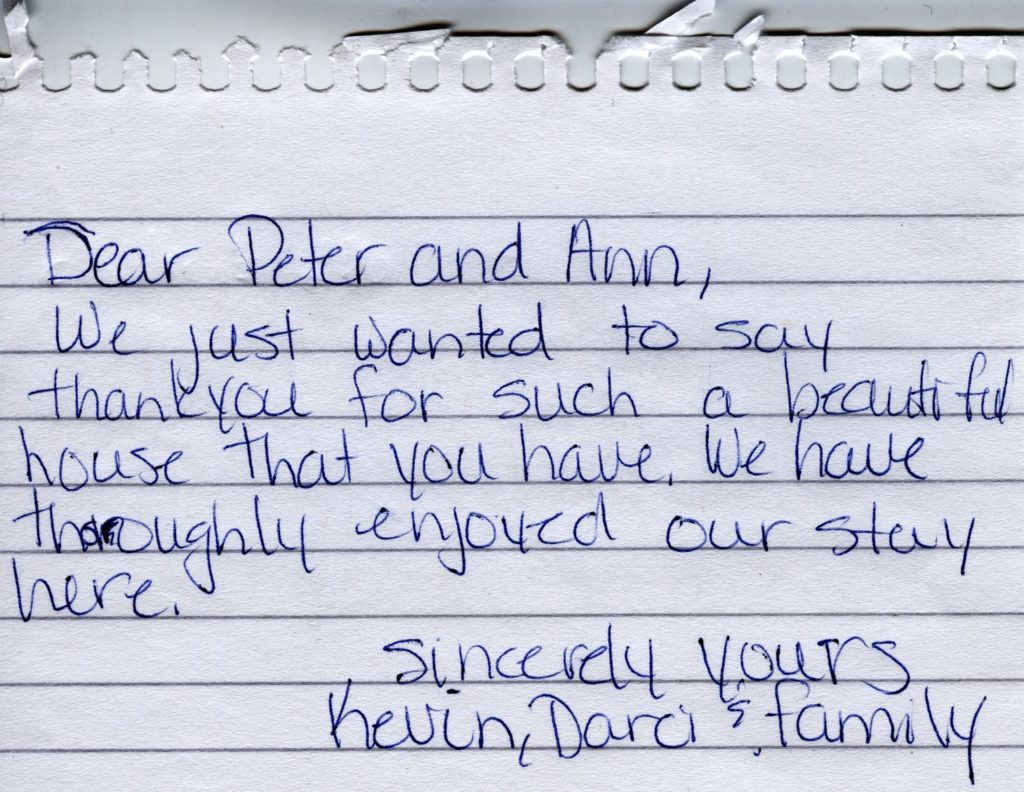 Dear Peter and Ann,
We just wanted to say
thankyou for such a beautiful
house that you have. We have
thoroughly enjoyed our stay
here.
sincerely yours
Kevin, Darci & family